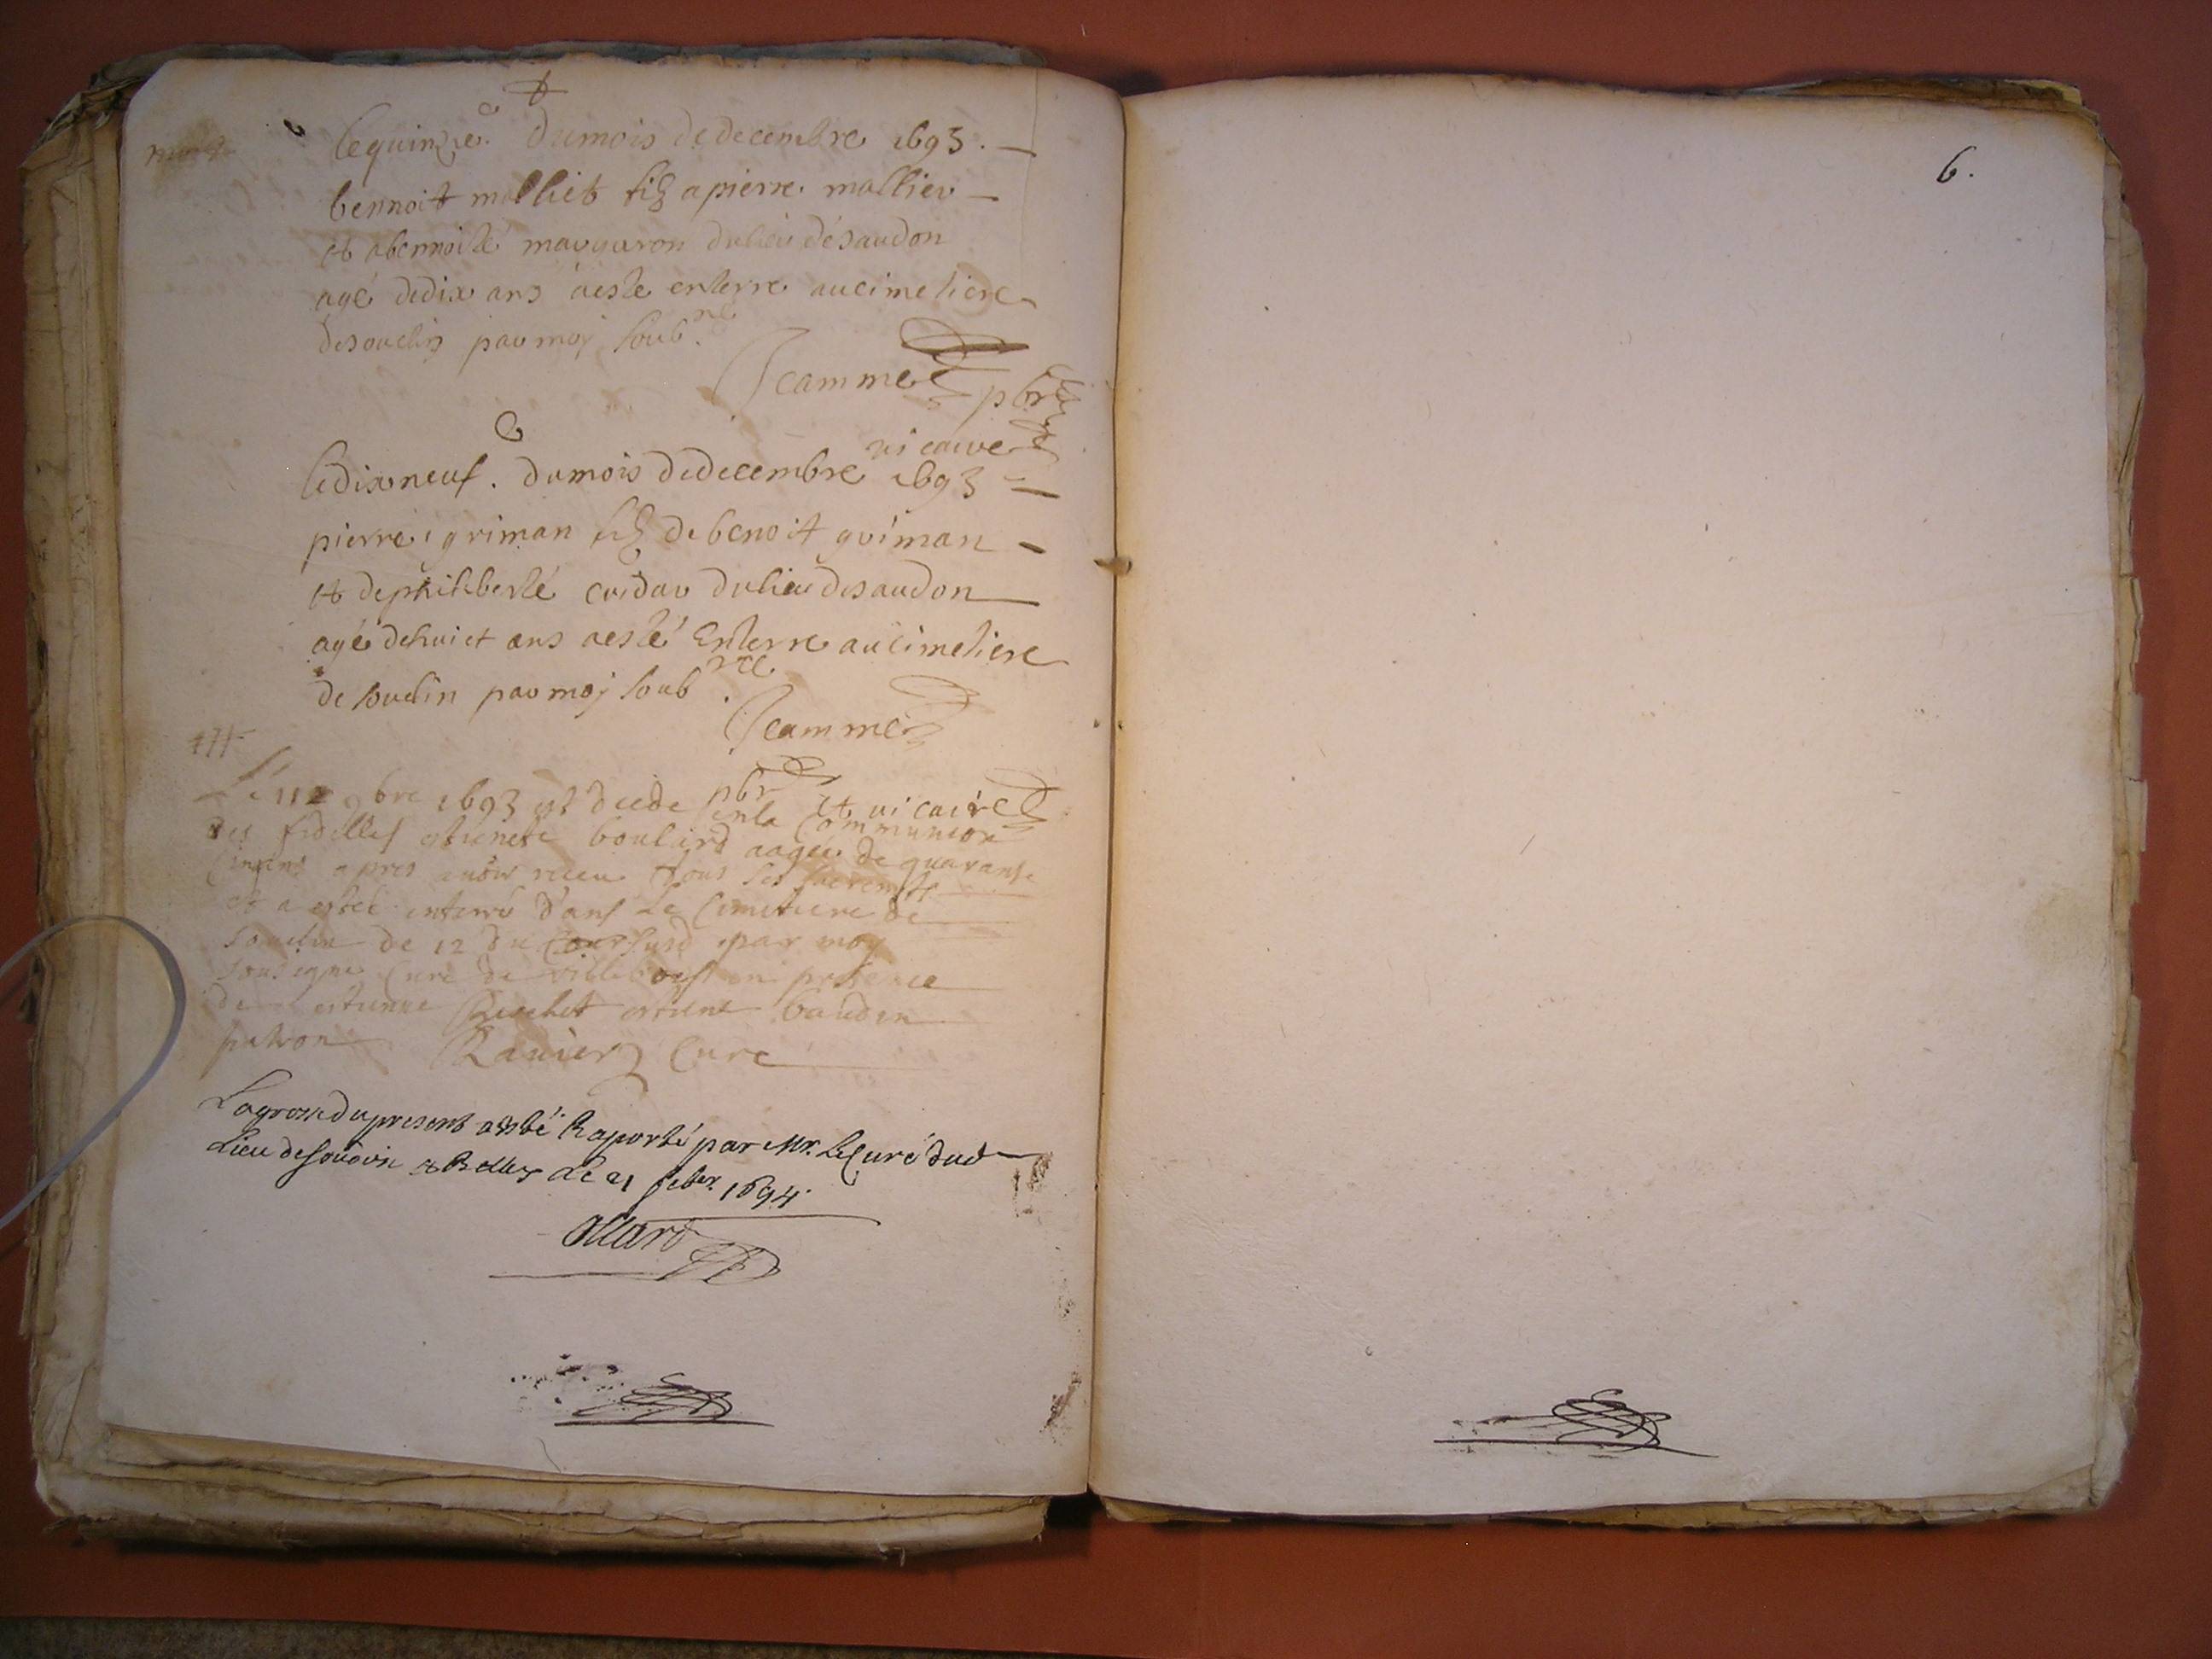 lequinzie. dumois dedecembre 1693.
bennoit molliet filz apierre mollier
et abennoite maygaron dulieu desaudon
agé dedix ans aeste enterre aucimetiere
desouclin par moy soub.né
Jcamme pbr
vicaire
ledixneuf. dumois dedecembre 1693
pierre griman filz debenoit griman
et dephiliberté dulieu desaudon
agé dehuict ans aesté enterre aucimetiere
de souclin par moy soub.né
Jcamme
pbr et vicaire
Le 9bre 1693 est decede en la Communion
des fidelles boulard aagée de quarante
apres avoir receu tous les sacremts
et a estée enterré dans le Cimetiere de
souclin le 12 du par moy
sousigné Curé de villeboys en presence
de estienne estiene baudin
patron Ravier Curé
La grosse du present a esté Raporté par Mr. Le Curé dud
Lieu de Le 21 feber. 1694.
allard
6.